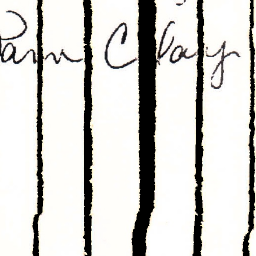 Pam Clay